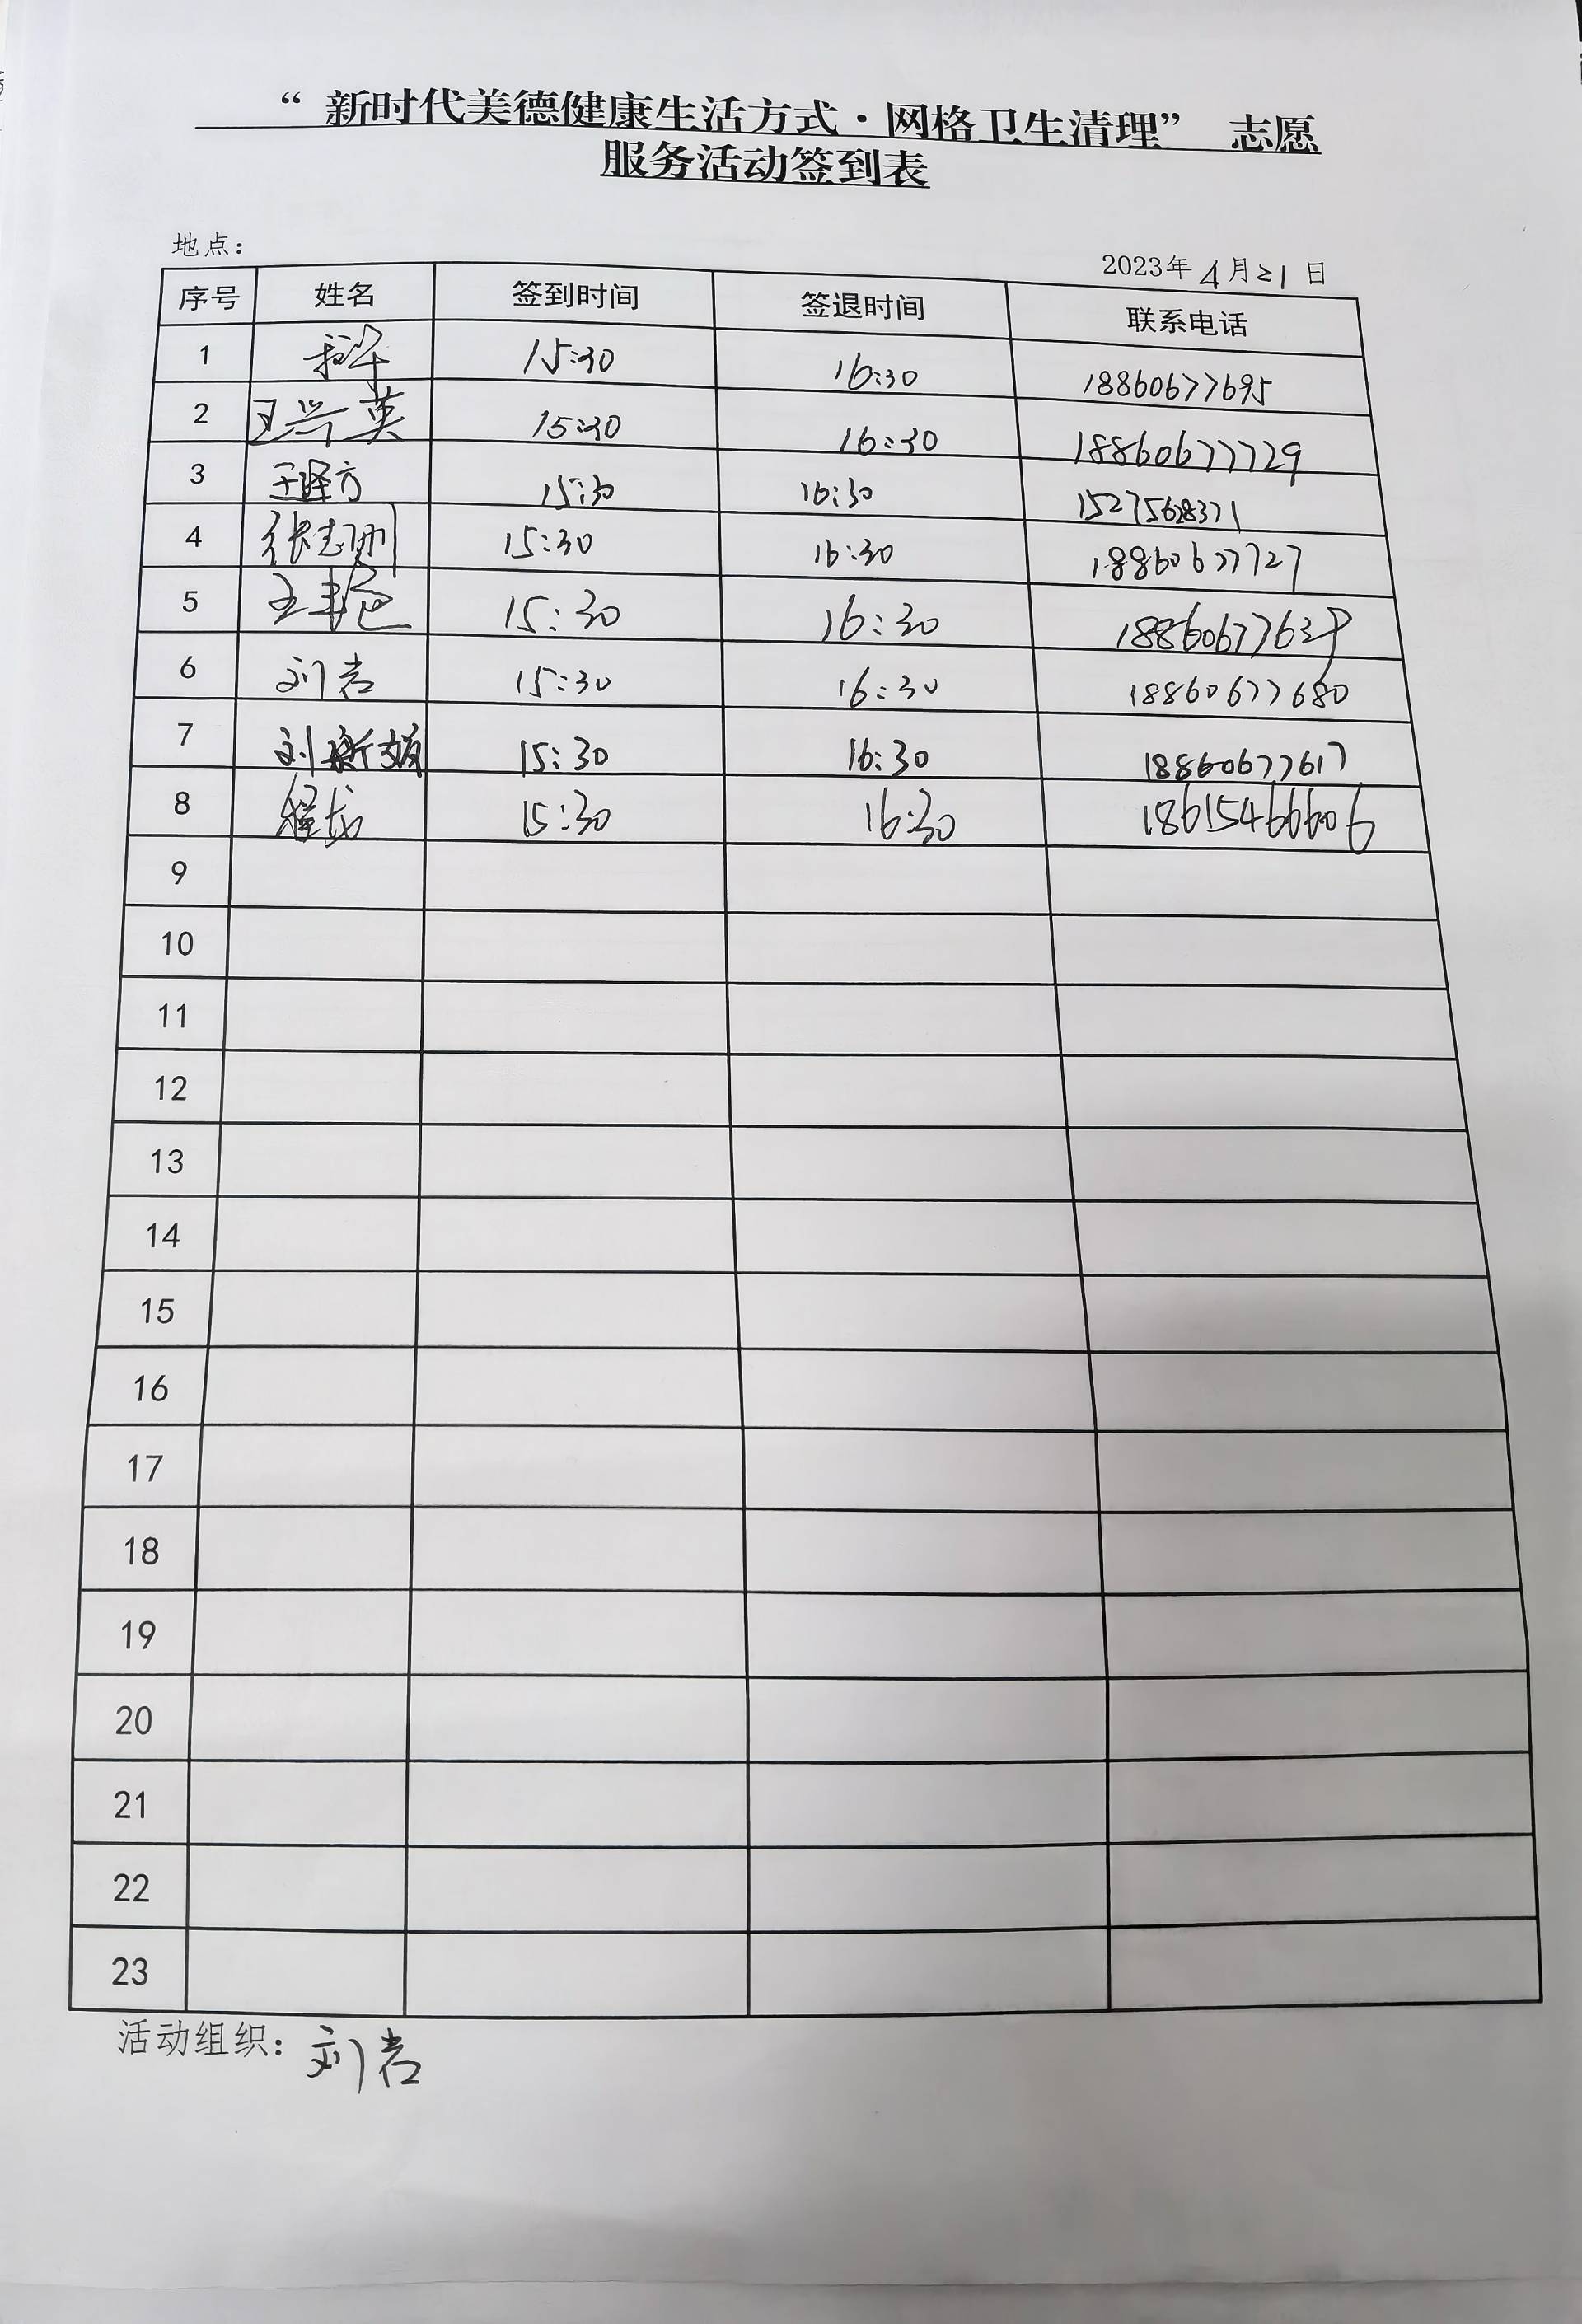 “新时代美德健康生活方式·网格卫生清理” 志愿
服务活动签到表
地点：
2023年4月21日
序号 姓名 签到时间 签退时间 联系电话
1 15:30 16:30 18860677695
2 王兴英 15:30 16:30 18860677729
3 王泽方 15:30 16:30 15275628371
4 张志刚 15:30 16:30 18860677727
5 王丰艳 15:30 16:30
6 刘岩 15:30 16:30 18860677680
7 刘新娟 15:30 16:30 18860677617
8 程龙 15:30 16:30 18615466606
9
10
11
12
13
14
15
16
17
18
19
20
21
22
23
活动组织：刘岩